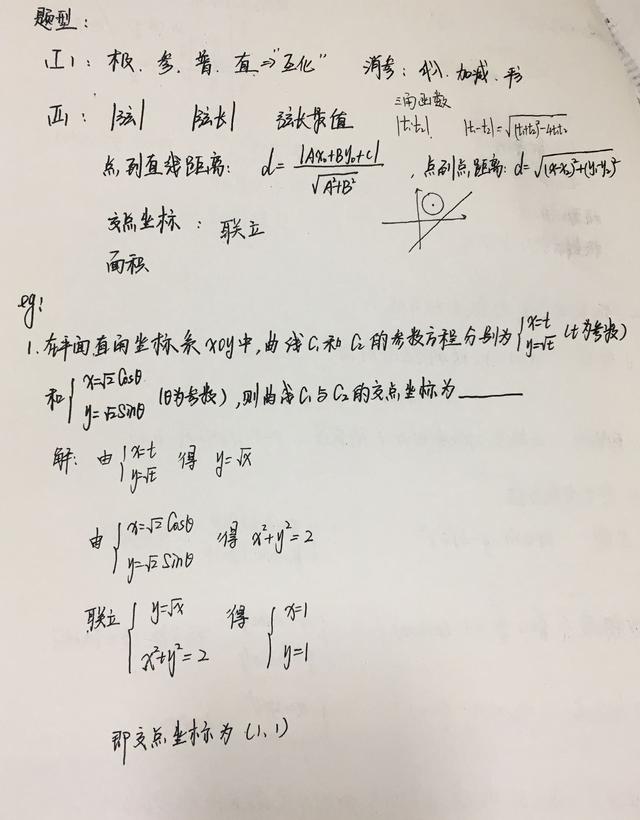 题型:
(I): 极、参、普、直⇒"互化" 消参: 代入、加减、平方
三角函数
(II): |弦| |弦长| 弦长最值 |t₁t₂| |t₁-t₂|=√((t₁+t₂)²-4t₁t₂)
点到直线距离: d=|Ax₀+By₀+C|/√(A²+B²), 点到点距离: d=√((x-x₀)²+(y-y₀)²)
交点坐标: 联立
面积
eg:
1. 在平面直角坐标系xoy中,曲线C₁和C₂的参数方程分别为{x=t y=√t (t为参数)
和{x=√2Cosθ y=√2Sinθ (θ为参数),则曲线C₁与C₂的交点坐标为______
解: 由{x=t y=√t 得 y=√x
由{x=√2Cosθ y=√2Sinθ 得 x²+y²=2
联立{y=√x x²+y²=2 得{x=1 y=1
即交点坐标为(1,1)